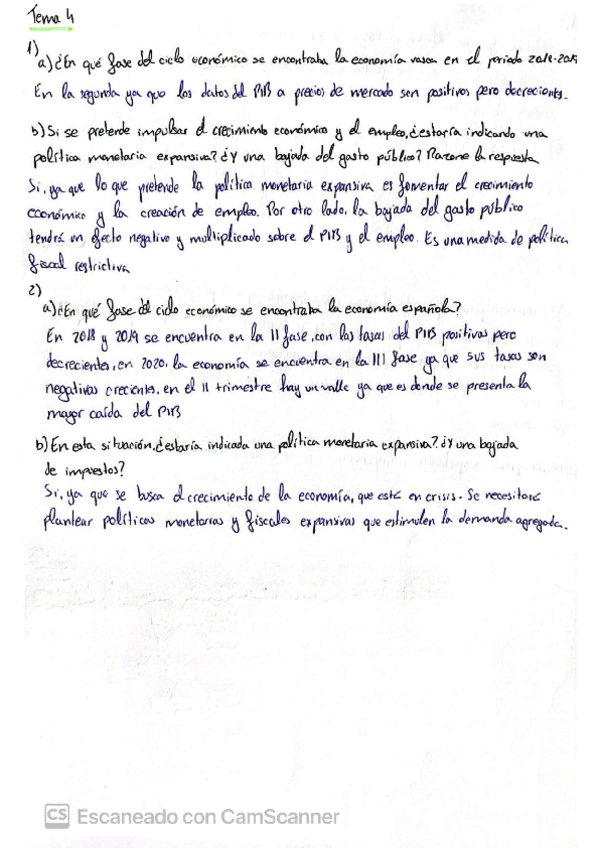 Tema 4
1)
a) ¿En qué fase del ciclo económico se encontraba la economía vasca en el periodo 2018-2019
En la segunda ya que los datos del PIB a precios de mercado son positivos pero decrecients.
b) Si se pretende impulsar el crecimiento económico y el empleo, ¿estaría indicando una
política monetaria expansiva? ¿Y una bajada del gasto público? Razone la respuesta
Si, ya que lo que pretende la política monetaria expansiva es fomentar el crecimiento
económico y la creación de empleo. Por otro lado, la bajada del gasto público
tendrá un efecto negativo y multiplicado sobre el PIB y el empleo. Es una medida de política
fiscal restrictiva
2)
a) ¿En qué fase del ciclo económico se encontraba la economía española?
En 2018 y 2019 se encuentra en la II fase, con las tasas del PIB positivas pero
decrecientes, en 2020, la economía se encuentra en la III fase ya que sus tasas son
negativas crecientes, en el II trimestre hay un valle ya que es donde se presenta la
mayor caída del PIB
b) En esta situación, ¿estaría indicada una política monetaria expansiva? ¿Y una bajada
de impuestos?
Si, ya que se busca el crecimiento de la economía, que está en crisis. Se necesitará
plantear políticas monetarias y fiscales expansivas que estimulen la demanda agregada.
CS Escaneado con CamScanner